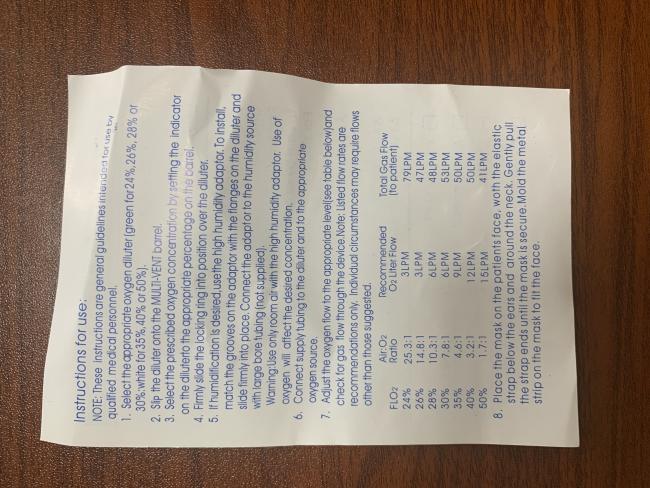 Instructions for use:
NOTE: These instructions are general guidelines intended for use by
qualified medical personnel.
1. Select the appropriate oxygen diluter(green for24%,26%, 28% or
30%:white for35%,40% or 50%).
2. Slip the diluter onto the MULTI-VENT barrel.
3. Select the prescribed oxygen concentration by setting the indicator
on the diluterto the appropriate percentage on the barrel.
4. Firmly slide the locking ring into position over the diluter.
5. If humidification is desired,use the high humidity adaptor. To install,
match the grooves on the adaptor with the flanges on the diluter and
slide firmly into place. Connect the adaptor to the humidity source
with large bore tubing (not supplied).
Warning:Use only room air with the high humidity adaptor. Use of
oxygen will affect the desired concentration.
6. Connect supply tubing to the diluter and to the appropriate
oxygen source.
7. Adjust the oxygen flow to the appropriate level(see table below)and
check for gas flow through the device.Note: Listed flow rates are
recommendations only. Individual circumstances may require flows
other than those suggested.
FLO2 Air:O2 Ratlio Recommended O2 Liter Flow Total Gas Flow (to patient)
24% 25.3:1 3LPM 79LPM
26% 14.8:1 3LPM 47LPM
28% 10.3:1 6LPM 48LPM
30% 7.8:1 6LPM 53LPM
35% 4.6:1 9LPM 50LPM
40% 3.2:1 12LPM 50LPM
50% 1.7:1 15LPM 41LPM
8. Place the mask on the patients face, woth the elastic
strap below the ears and around the neck. Gently pull
the strap ends until the mask is secure.Mold the metal
strip on the mask to fit the face.